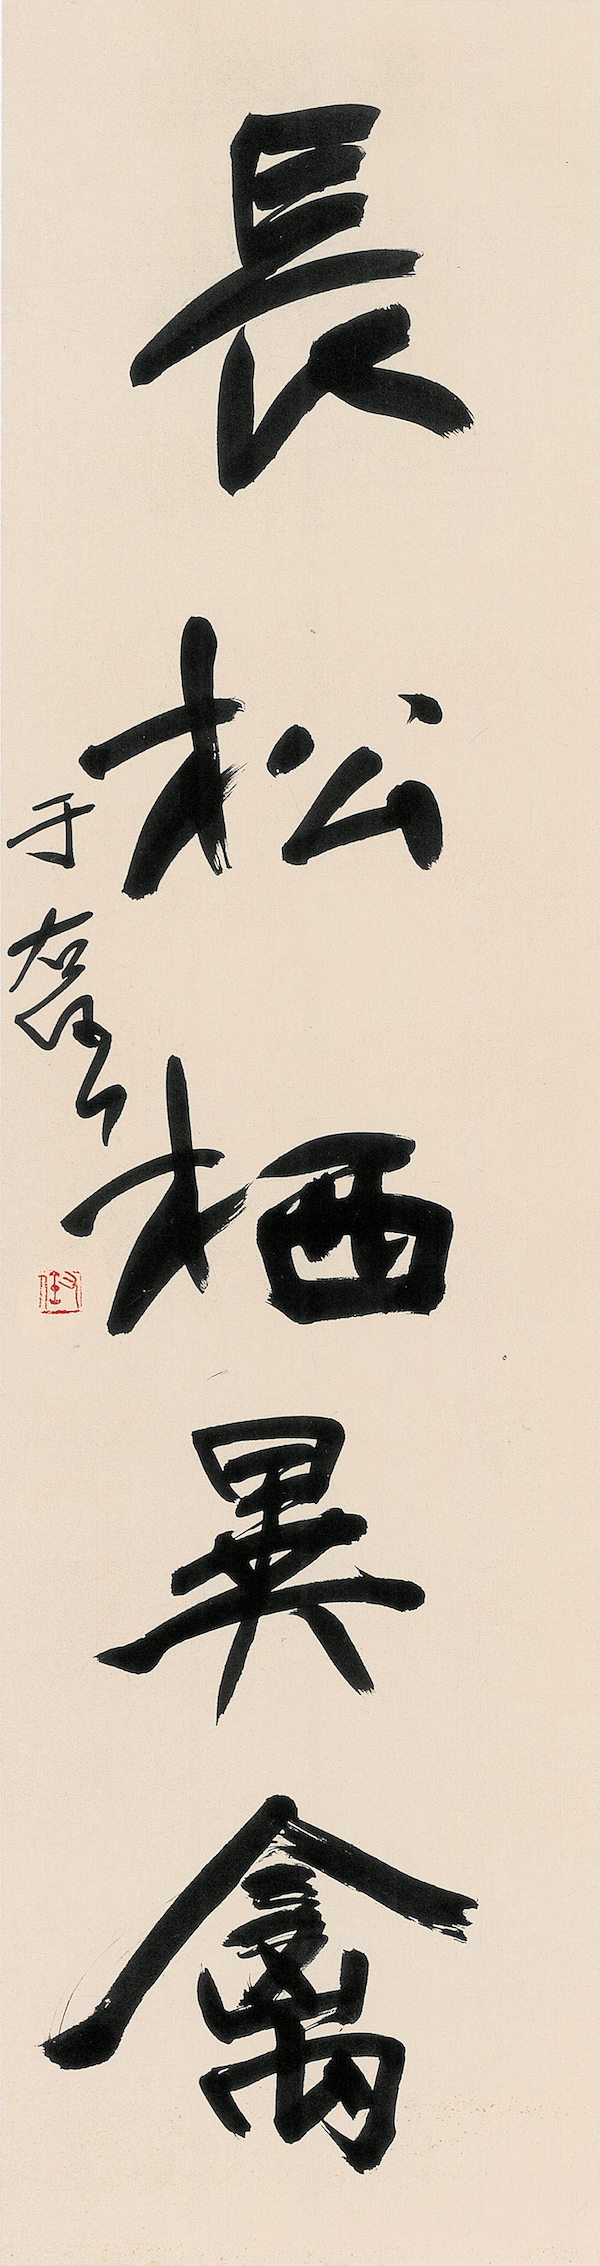 長松栖異禽
于右任
右任